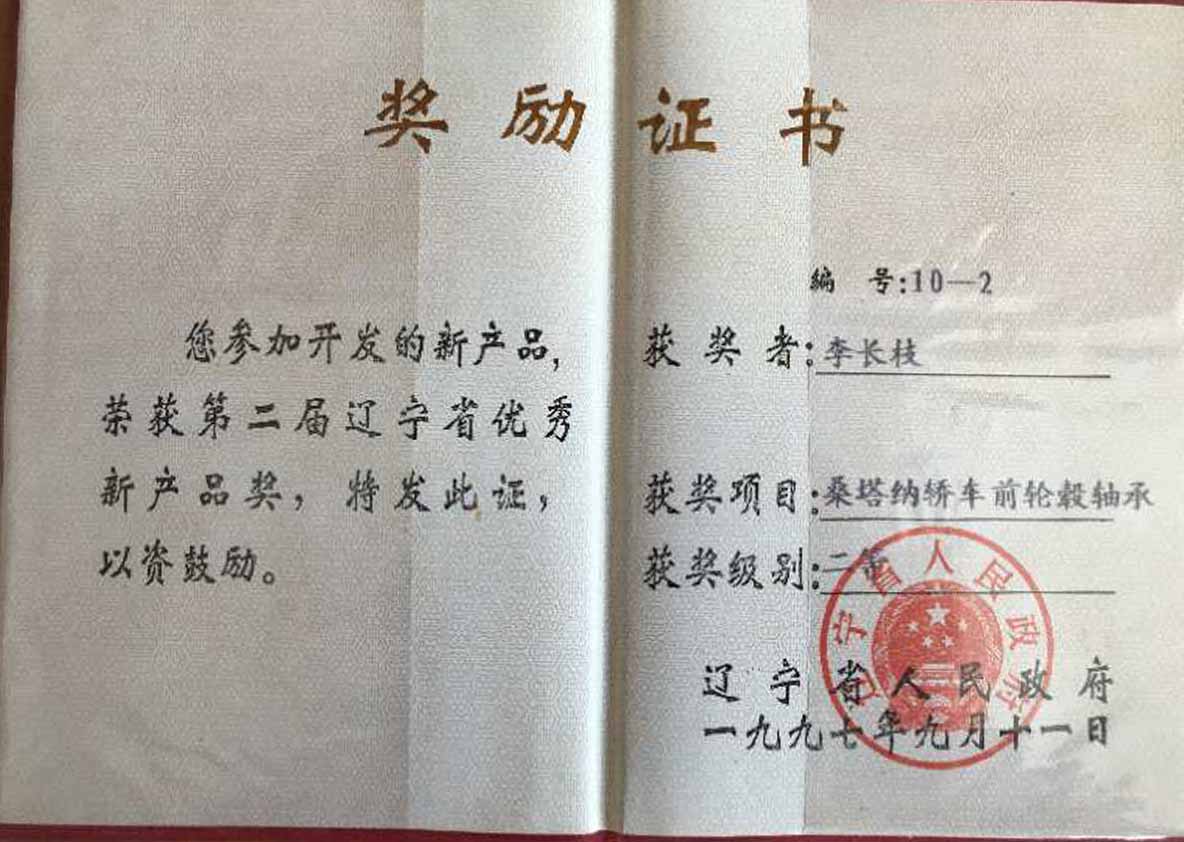 奖励证书
您参加开发的新产品，
荣获第二届辽宁省优秀
新产品奖，特发此证，
以资鼓励。
编 号:10—2
获奖者:李长枝
获奖项目:桑塔纳轿车前轮毂轴承
获奖级别:二等
辽宁省人民政府
一九九七年九月十一日
辽宁省人民政府